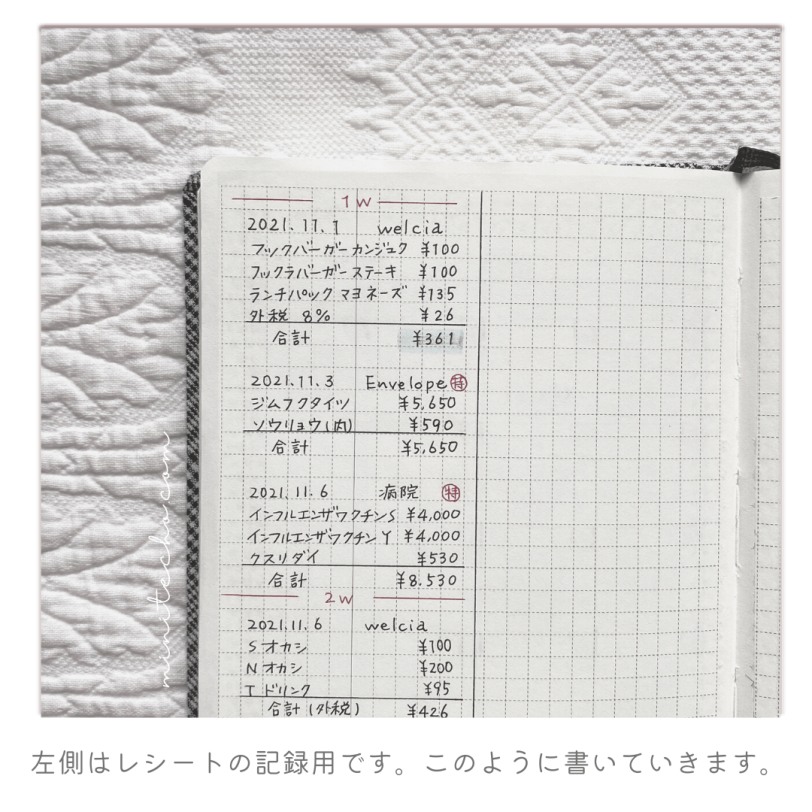 1W
2021.11.1 welcia
フックバーガー カンジュク ¥100
フックラバーガー ステーキ ¥100
ランチパック マヨネーズ ¥135
外税 8% ¥26
合計 ¥361
2021.11.3 Envelope 特
ジムフクタイツ ¥5,650
ソウリョウ(内) ¥590
合計 ¥5,650
2021.11.6 病院 特
インフルエンザワクチンS ¥4,000
インフルエンザワクチンY ¥4,000
クスリダイ ¥530
合計 ¥8.530
2W
2021.11.6 welcia
S オカシ ¥100
N オカシ ¥200
T ドリンク ¥95
合計(外税) ¥426
minitecho.com
左側はレシートの記録用です。このように書いていきます。